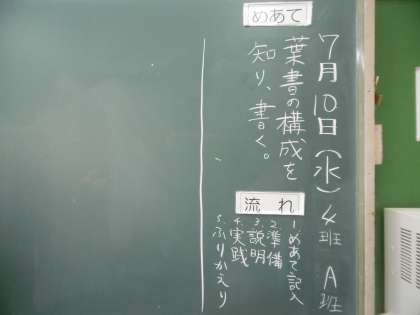 7月10日(水) 4班 A班
めあて
葉書の構成を
知り、書く。
流れ
1.めあて記入
2.準備
3.説明
4.実践
5.ふりかえり